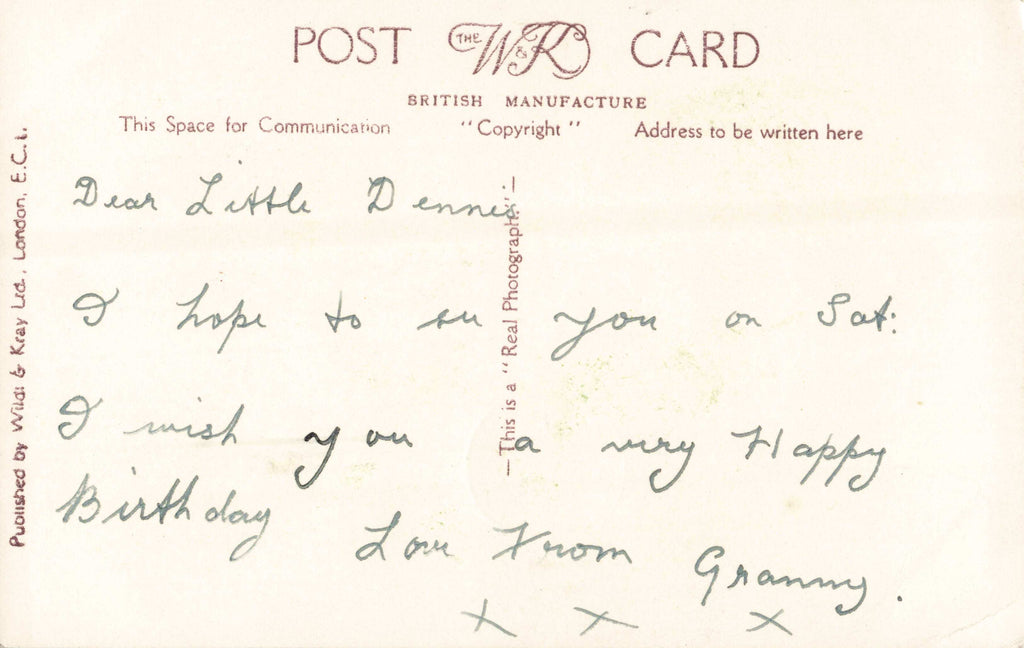 POST THE W & K CARD
BRITISH MANUFACTURE
This Space for Communication "Copyright" Address to be written here
Dear Little Dennis
I hope to see you on Sat:
I wish you a very Happy
Birthday Love From Granny.
x x x
Published by Wildt & Kray Ltd., London, E.C.1.
—This is a "Real Photograph."—